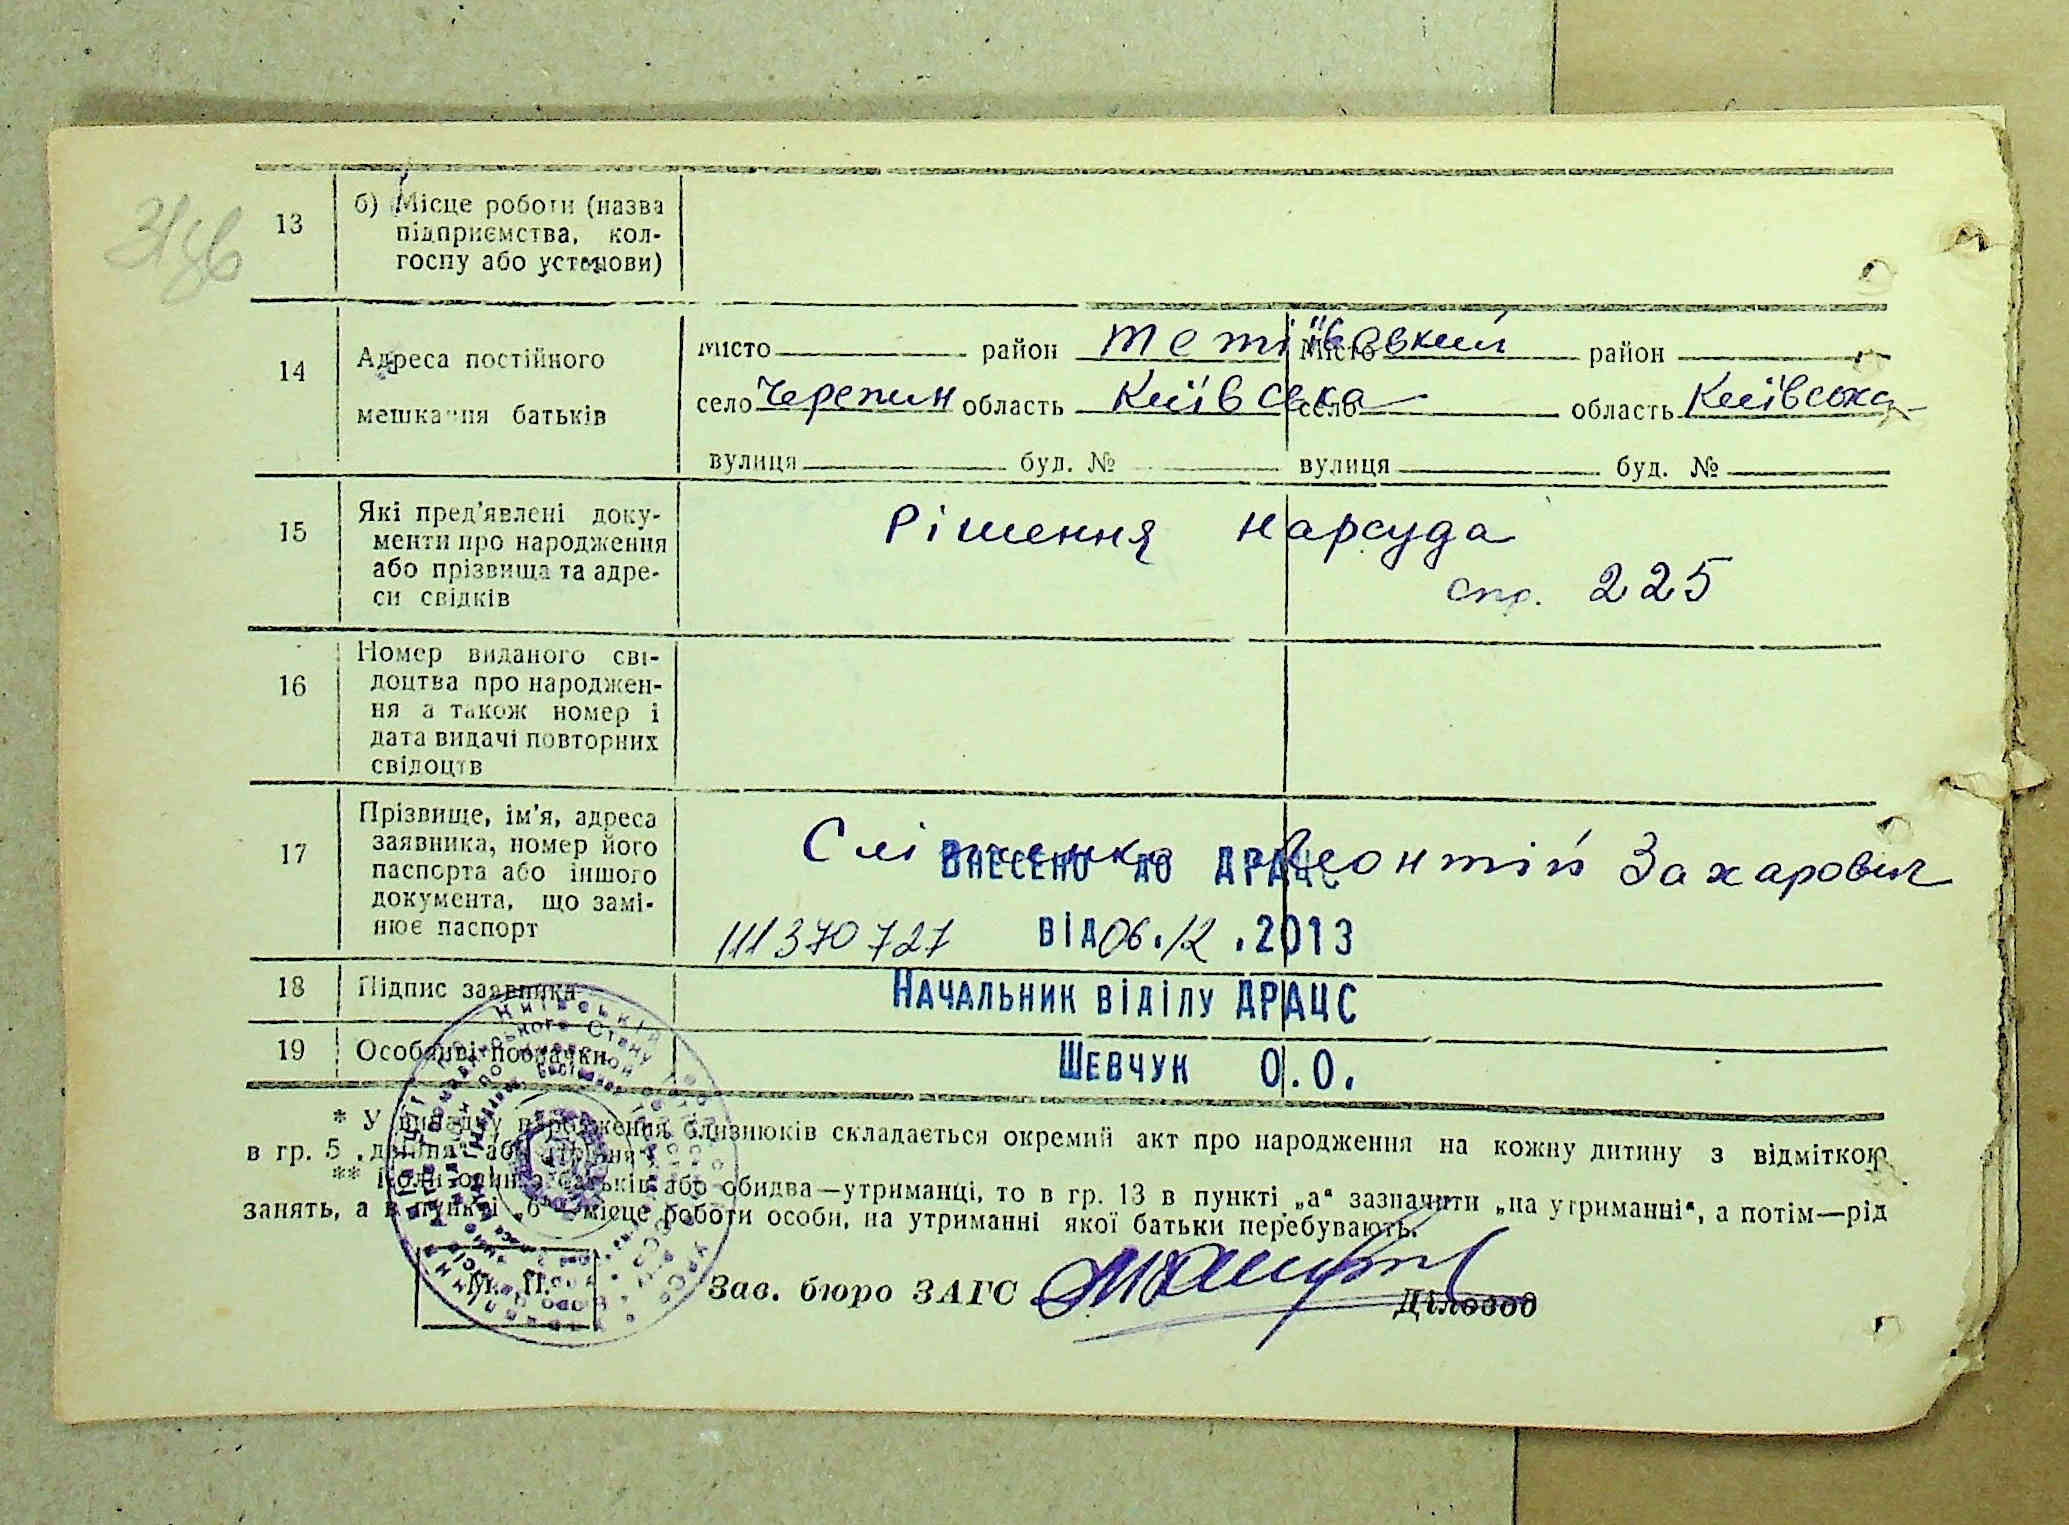 13 б) Місце роботи (назва
підприємства, кол-
госпу або установи)
14 Адреса постійного
мешкання батьків
місто район Тетіївський місто район
село Черепин область Київська село область Київська
вулиця буд. № вулиця буд. №
15 Які пред'явлені доку-
менти про народження
або прізвища та адре-
си свідків
Рішення нарсуда
стр. 225
16 Номер виданого сві-
доцтва про народжен-
ня а також номер і
дата видачі повторних
свідоцтв
17 Прізвище, ім'я, адреса
заявника, номер його
паспорта або іншого
документа, що замі-
нює паспорт
Леонтій Захарович
ВНЕСЕНО ДО ДРАЦС
111370727 ВІД 06.12.2013
18 Підпис заявника
НАЧАЛЬНИК ВІДІЛУ ДРАЦС
19 Особливі позначки
ШЕВЧУК О.О.
* У випадку народження близнюків складається окремий акт про народження на кожну дитину з відміткою
в гр. 5 „двійня“ або „трійня“.
** Коли один з батьків або обидва—утриманці, то в гр. 13 в пункті „а“ зазначити „на утриманні“, а потім—рід
занять, а в пункті „б“—місце роботи особи, на утриманні якої батьки перебувають.
М. П.
Зав. бюро ЗАГС Діловод